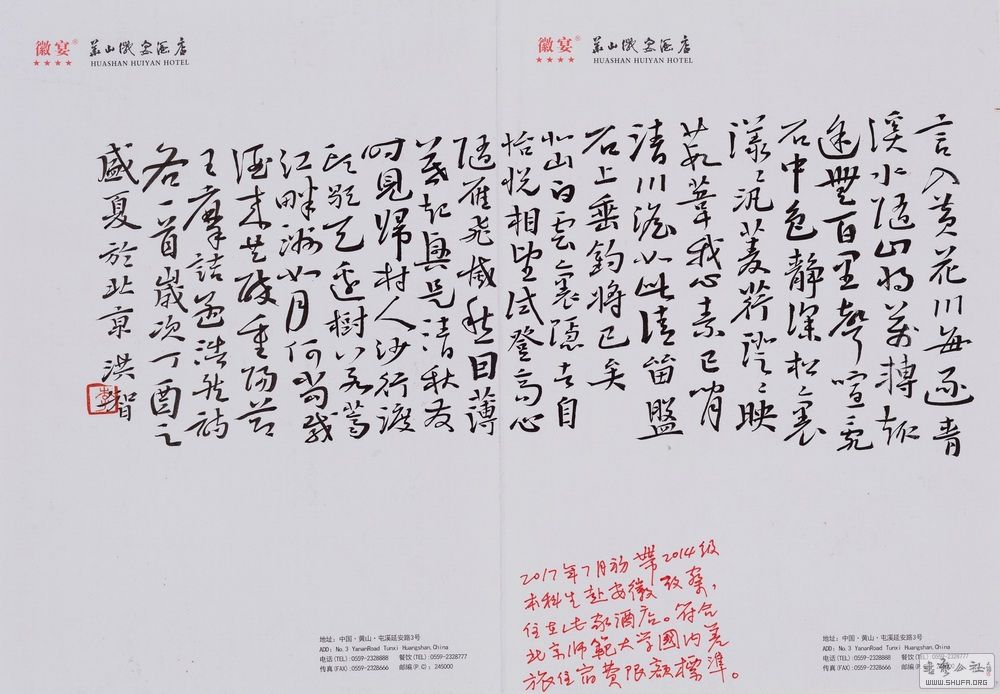 徽宴®
黄山徽宴酒店
HUASHAN HUIYAN HOTEL
徽宴®
黄山徽宴酒店
HUASHAN HUIYAN HOTEL
言入黄花川每逐青
溪水隨山將萬轉趣
途無百里聲喧亂
石中色静深松裏
漾漾汎菱荇澄澄映
葭葦我心素已閒
清川澹如此請留盤
石上垂釣將已矣
北山白雲裏隱者自
怡悦相望試登高心
隨雁飛滅愁因薄
暮起興是清秋發
時見歸村人沙行渡
頭歇天邊樹若薺
江畔洲如月何當載
酒來共醉重陽節
王摩詰孟浩然詩
各一首歲次丁酉之
盛夏於北京洪智
2017年7月初帶2014级
本科生赴安徽考察，
住在此家酒店。符合
北京师範大学國内差
旅住宿費限額標準。
地址：中国·黄山·屯溪延安路3号
ADD：No.3 YananRoad Tunxi Huangshan,China
电话(TEL)：0559-2328888 餐饮(TEL)：0559-2328777
传真(FAX)：0559-2328666 邮编(P C)：245000
地址：中国·黄山·屯溪延安路3号
ADD：No.3 YananRoad Tunxi Huangshan,China
电话(TEL)：0559-2328888 餐饮(TEL)：0559-2328777
传真(FAX)：0559-2328666
書學公社
WWW.SHUFA.ORG